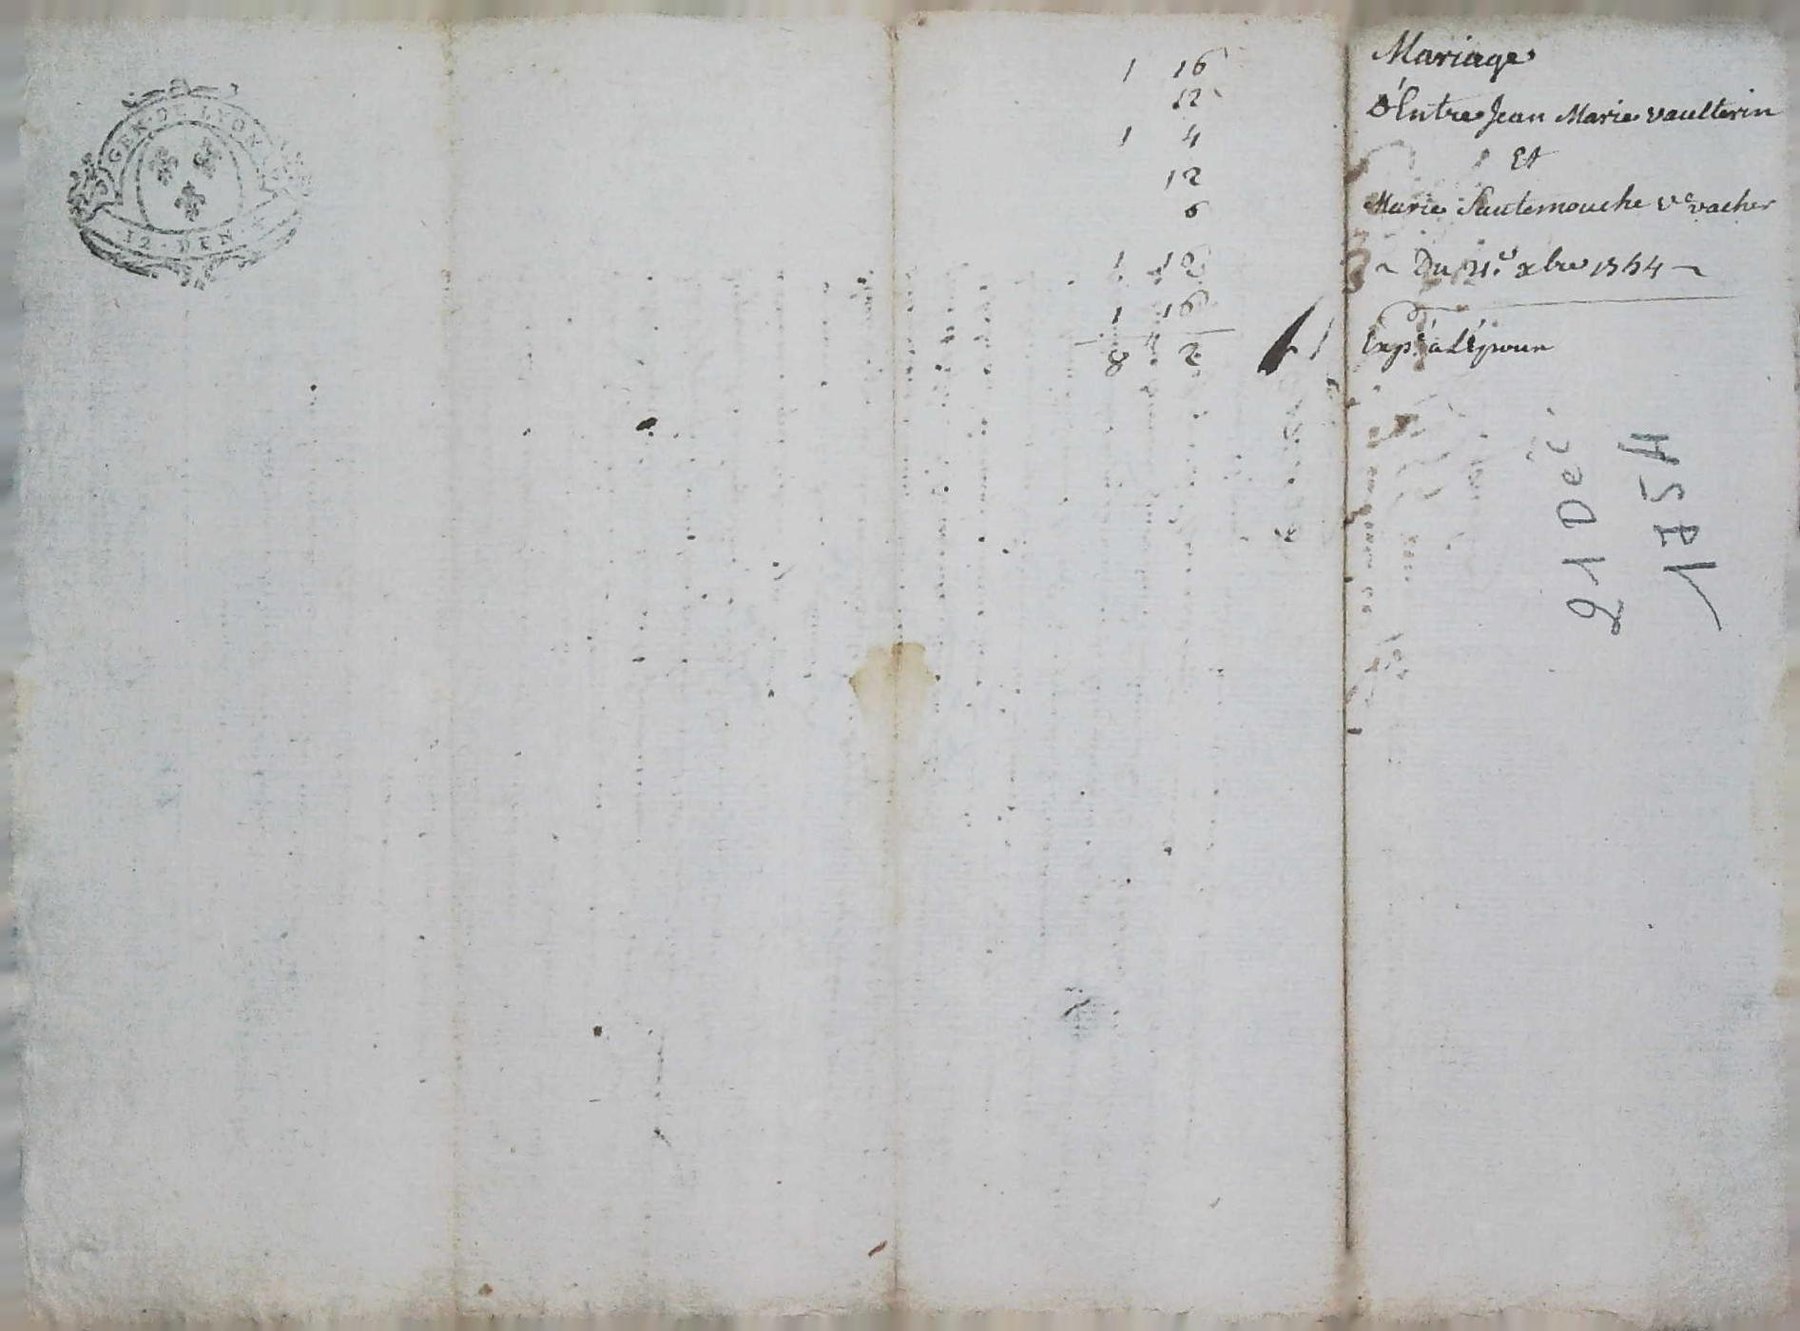 GEN·DE LYON
12·DEN
1 16
12
1 4
12
6
1 12
1 16
8 2
Mariage
d'Entre Jean Marie Vaulterin
Et
Marie Sautemouche Ve vacher
Du 21e xbre 1754
Expé à L'Epoux
21 Dec
1754